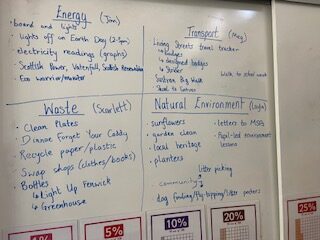 Energy (Jan)
• board and lights
• lights off on Earth Day (2-3pm)
• electricity readings (graphs)
• Scottish Power, Vattenfall, Scottish Renewables
• Eco warrior/monitor
Transport (Meg)
Living Streets travel tracker
↳ badges
↳ designed badges
↳ Strider
Walk to school week
Sustrans Big Walk
Waste (Scarlett)
• Clean Plates
• Dinnae Forget Your Caddy
• Recycle paper/plastic
• Swap shops (clothes/books)
• Bottles
↳ Light Up Fenwick
↳ Greenhouse
Natural Environment (Layla)
• sunflowers
• garden clean
• local heritage
• planters
• Letters to MSPs
• Pupil-led environment lessons
litter picking
community
dog fouling/fly-tipping/litter posters
1%
5%
10%
20%
25%